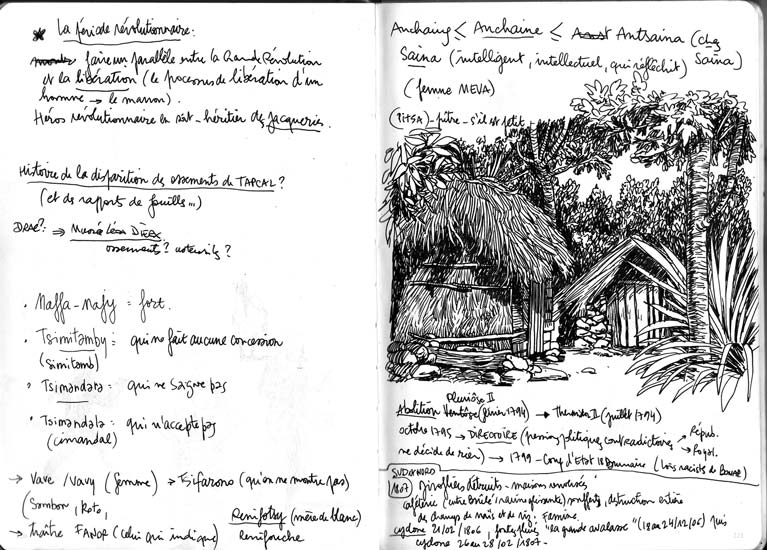 * La période révolutionnaire:
faire un parallèle entre la Grande Révolution
et la libération (le processus de libération d'un
homme → le marron).
Héros révolutionnaire en soi - héritier des jacqueries.
Histoire de la disparition des ossements du TAPCAL?
(et des rapports de fouilles...)
DRAC? ⇒ Musée Léon DIERX
ossements? ustensiles?
• Maffa-mafy = fort.
• Tsimitamby: qui ne fait aucune concession
(simitamb)
• Tsimandata: qui ne saigne pas
• Tsimandala: qui n'accepte pas
(cimandal)
→ Vave / Vavy (femme) → Tsifarono (qu'on ne montre pas)
(Sambon, Koto,
→ traître FANOR (celui qui indique)
Renifotsy (mère des blancs)
Renifouche
Anchaing ≤ Anchaine ≤ Antsaina (chez Saina)
Saina (intelligent, intellectuel, qui réfléchit)
(femme MEVA)
(PITSA) - pitre - s'il est petit
Pluviôse II
Abolition Ventôse (février 1794) → Thermidor II (juillet 1794)
octobre 1795 → DIRECTOIRE (pressions politiques contradictoires → Répub.
→ Royal.
ne décide de rien) → 1799 - Coup d'Etat 18 Brumaire (Lois racistes de Bonap.)
SUD & NORD
1807 Giroffliers détruits - maisons renversées
caféterie (entre Brûlé / ravine glissante) souffert, destruction entière
de champs de maïs et de riz. famine.
cyclone 21/02/1806, fortes pluies "la grande avalasse" (18 au 24/12/06) puis
cyclone 26 au 28/02/1807-